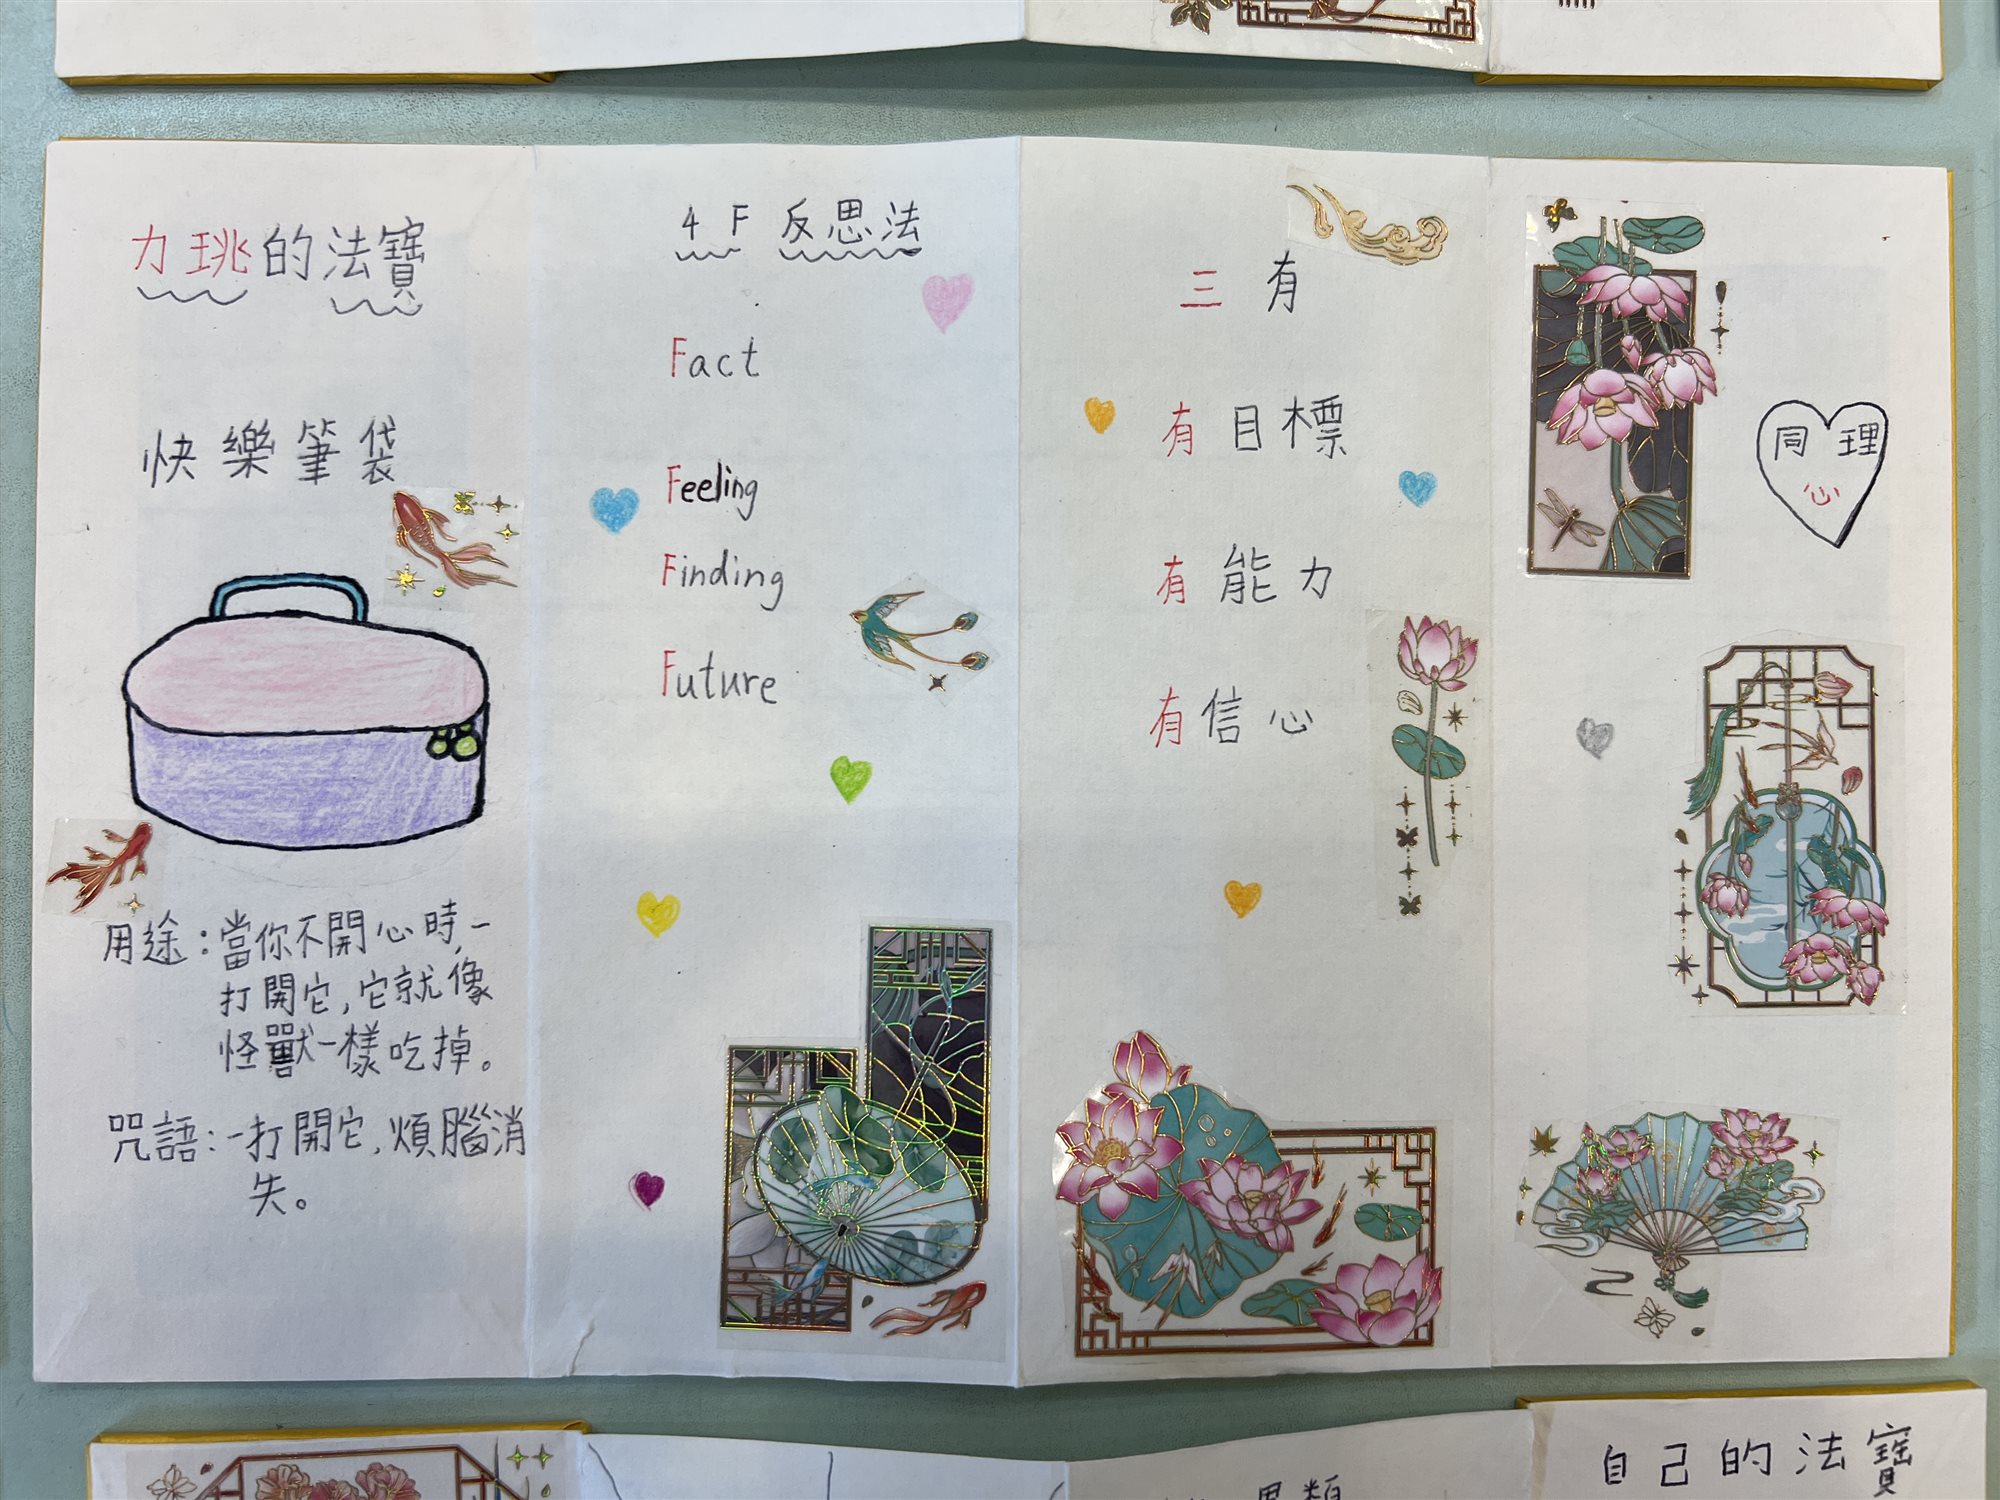 力珧的法寶
快樂筆袋
用途：當你不開心時，一
打開它，它就像
怪獸一樣吃掉。
咒語：一打開它，煩腦消
失。
4F反思法
Fact
Feeling
Finding
Future
三有
有目標
有能力
有信心
同理
心
自己的法寶